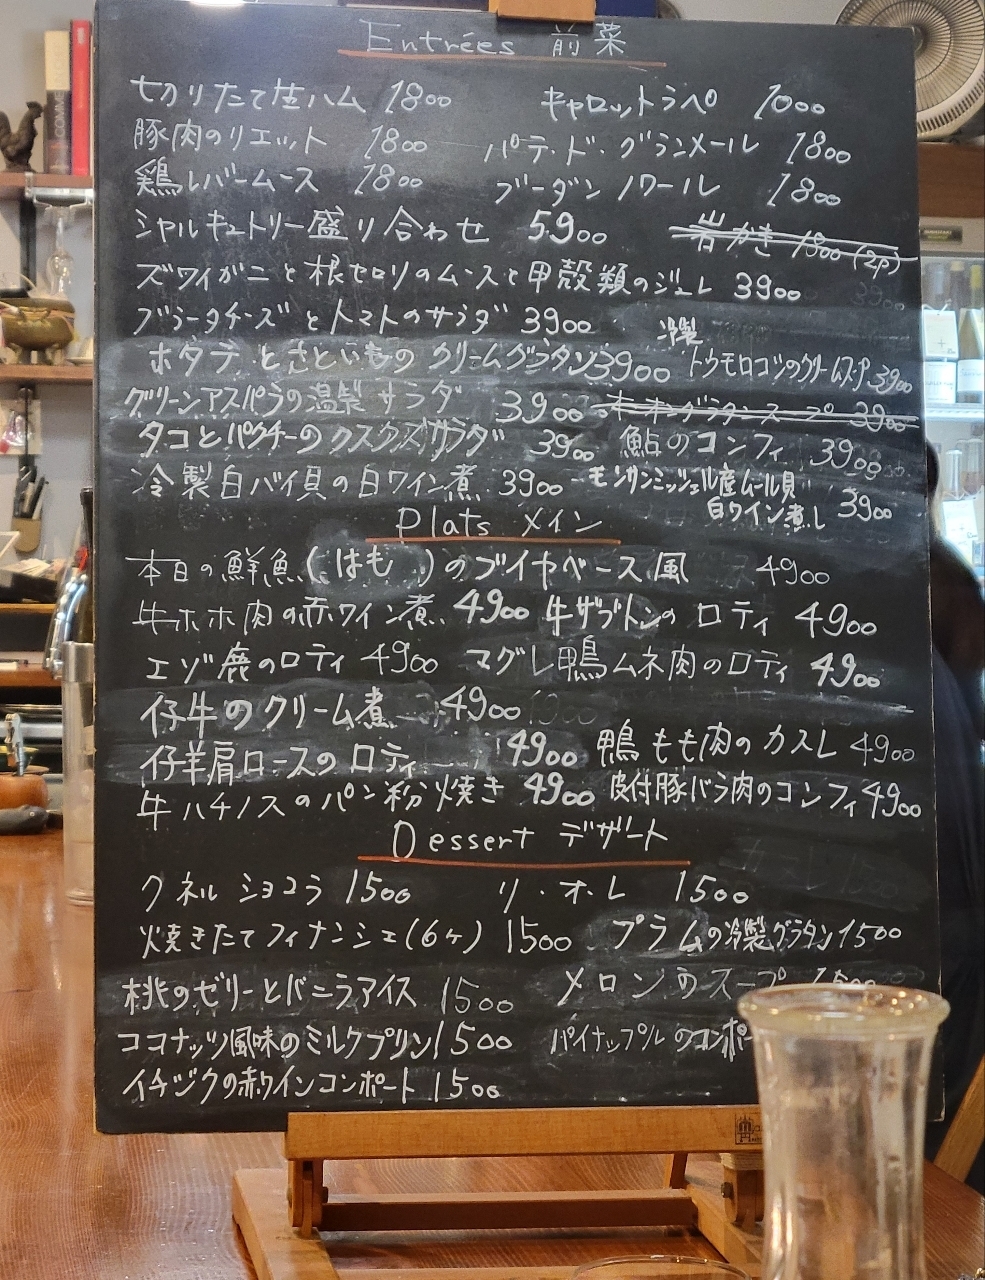 Entrées 前菜
切りたて生ハム 1800 キャロットラペ 1000
豚肉のリエット 1800 パテ・ド・グランメール 1800
鶏レバームース 1800 ブーダンノワール 1800
シャルキュトリー盛り合わせ 5900 岩がき 1800 (2P)
ズワイガニと根セロリのムースと甲殻類のジュレ 3900
ブラータチーズとトマトのサラダ 3900
冷製
ホタテとさといものクリームグラタン 3900 トウモロコシのクリームスープ 3900
グリーンアスパラの温製サラダ 3900 オニオングラタンスープ 3900
タコとパクチーのクスクスサラダ 3900 鮎のコンフィ 3900
冷製白バイ貝の白ワイン煮 3900 モンサンミッシェル産ムール貝
白ワイン煮し 3900
Plats メイン
本日の鮮魚(はも)のブイヤベース風 4900
牛ホホ肉の赤ワイン煮 4900 牛ザブトンのロティ 4900
エゾ鹿のロティ 4900 マグレ鴨ムネ肉のロティ 4900
仔牛のクリーム煮 4900
仔羊肩ロースのロティ 4900 鴨もも肉のカスレ 4900
牛ハチノスのパン粉焼き 4900 皮付豚バラ肉のコンフィ 4900
Dessert デザート
クネルショコラ 1500 リ・オ・レ 1500
焼きたてフィナンシェ(6ヶ) 1500 プラムの冷製グラタン 1500
桃のゼリーとバニラアイス 1500 メロンのスープ 1500
ココナッツ風味のミルクプリン 1500 パイナップルのコンポ
イチジクの赤ワインコンポート 1500